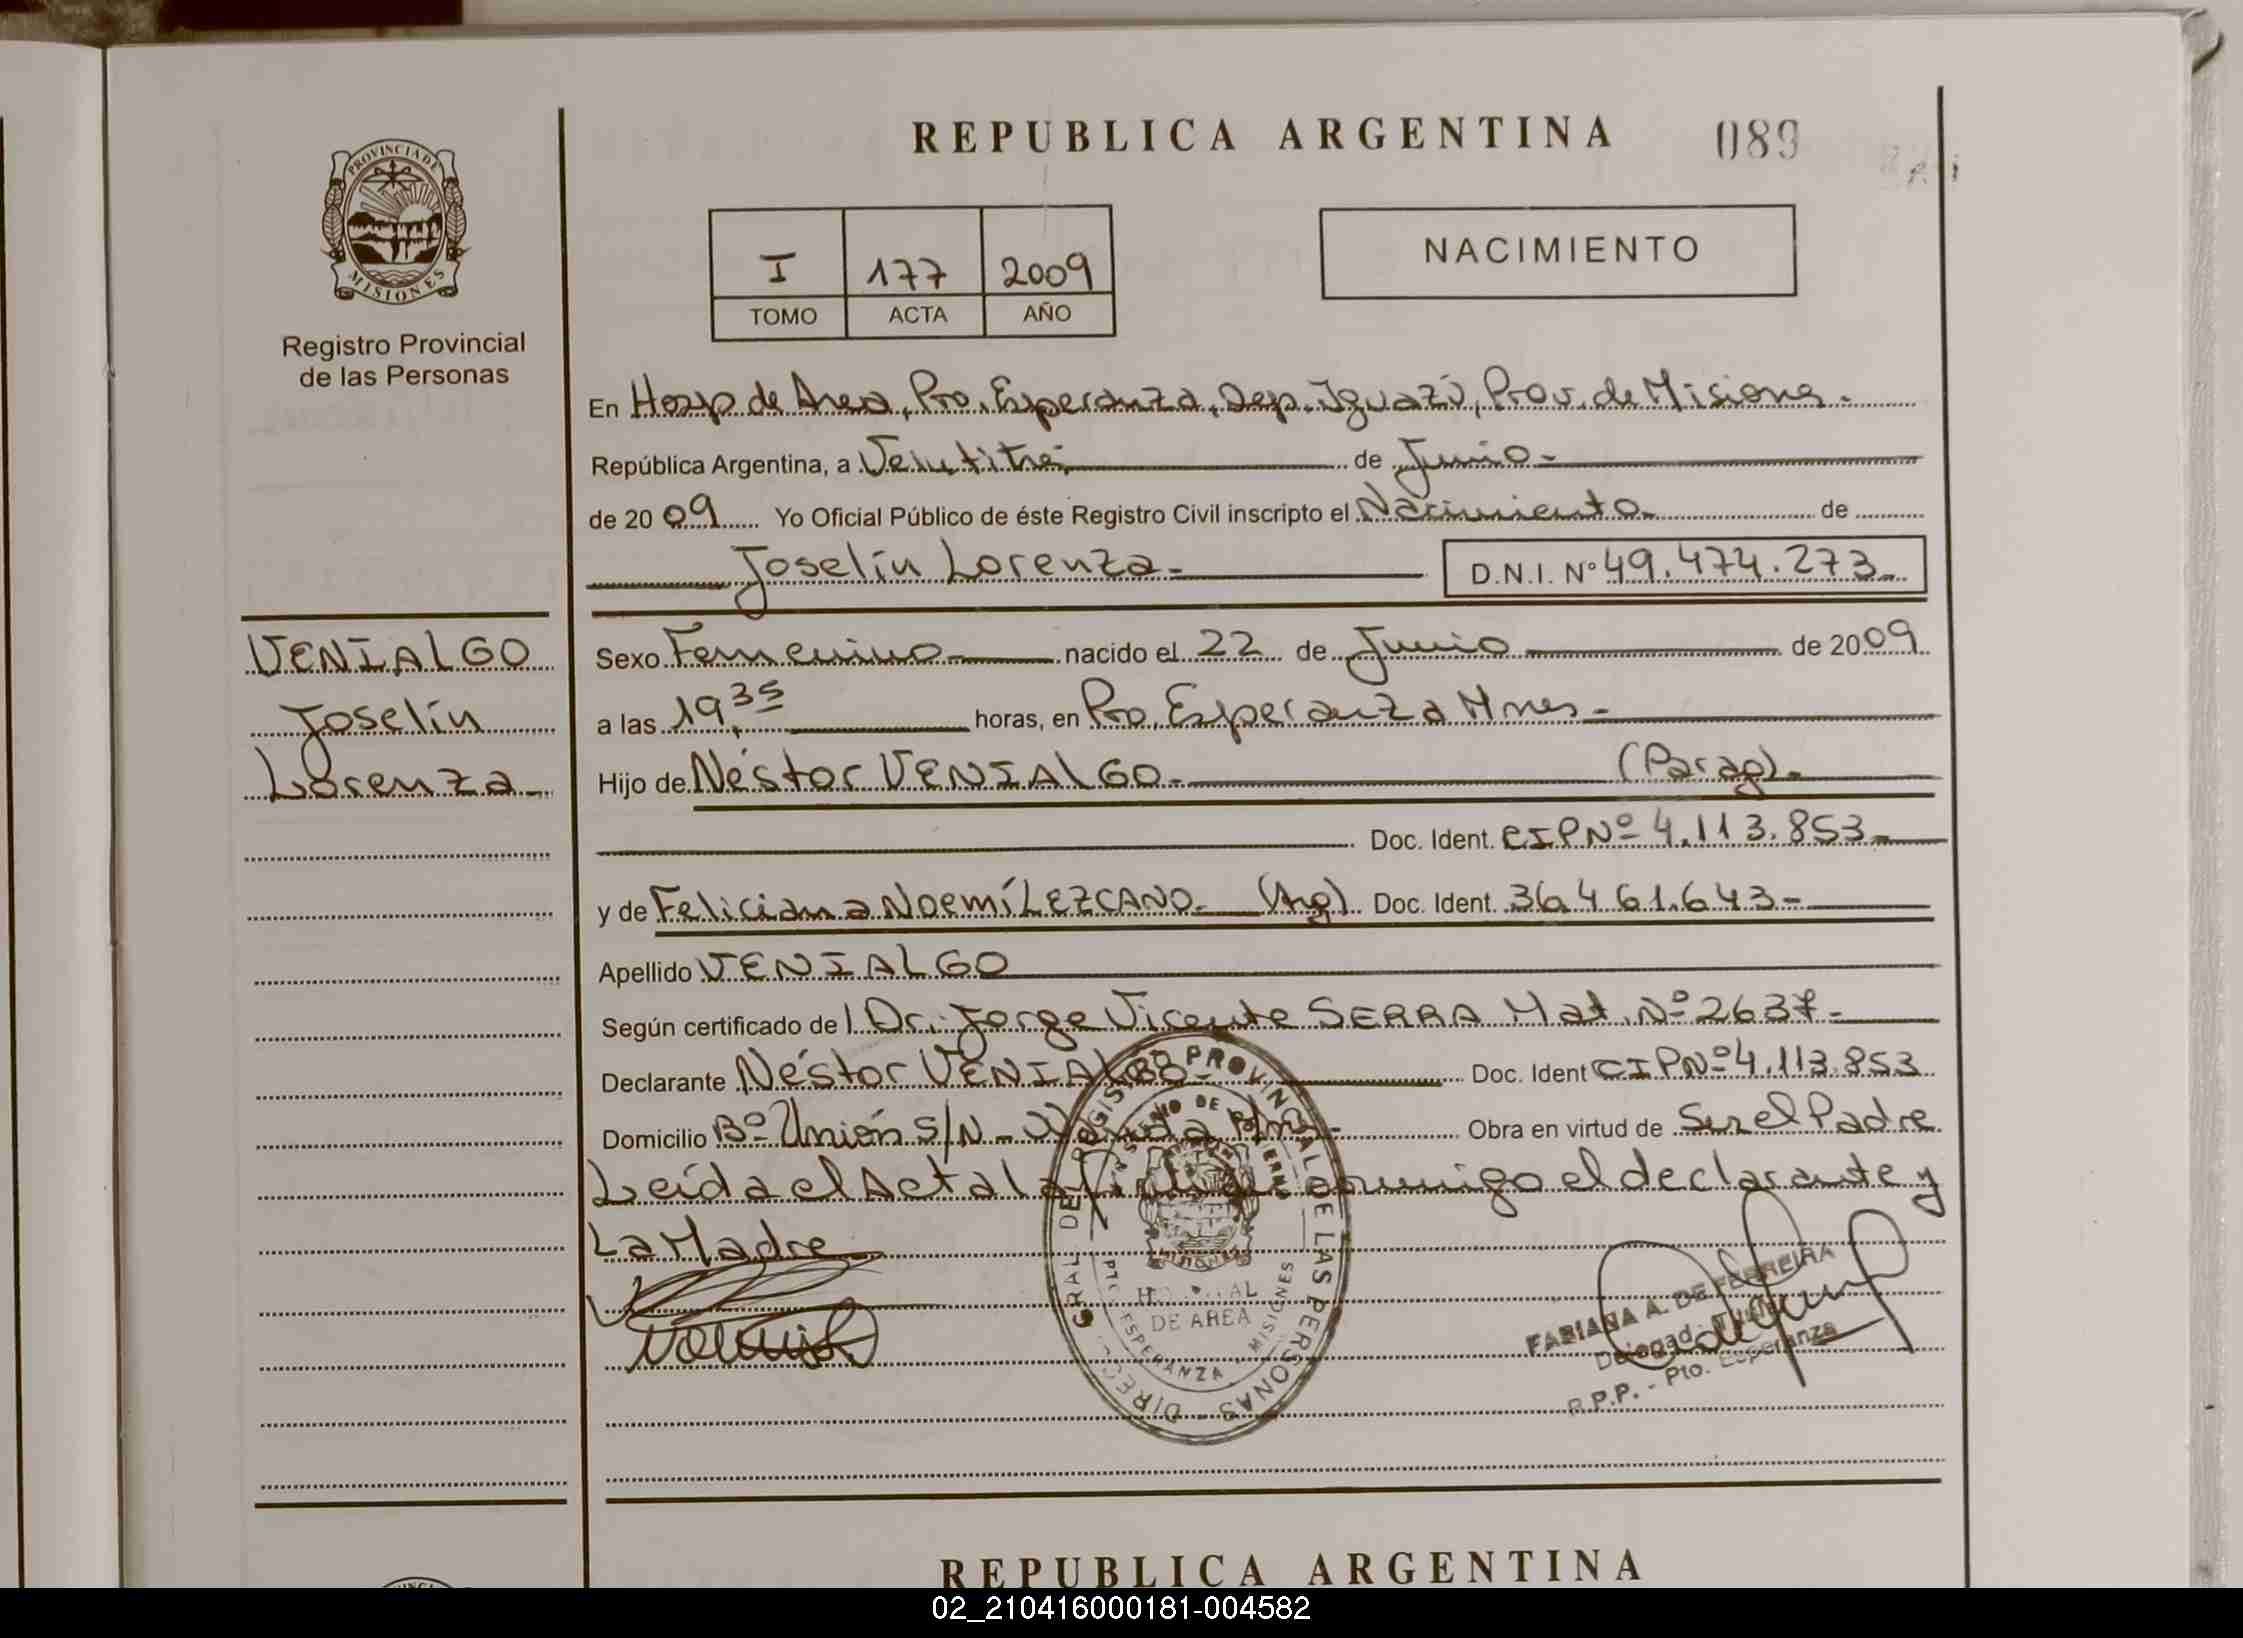 REPUBLICA ARGENTINA 089
PROVINCIA DE
MISIONES
Registro Provincial
de las Personas
I 177 2009
TOMO ACTA AÑO
NACIMIENTO
En Hosp de Area, Pto. Esperanza, Dep. Iguazú, Prov. de Misiones.
República Argentina, a Veintitrés de Junio.-
de 2009 Yo Oficial Público de éste Registro Civil inscripto el Nacimiento. de
Joselín Lorenza.- D.N.I. Nº 49.474.273
VENIALGO
Joselín
Lorenza
Sexo Femenino nacido el 22 de Junio de 2009
a las 19,35 horas, en Pto. Esperanza Mnes.-
Hijo de Néstor VENIALGO.- (Parag).-
Doc. Ident. CIPNº 4.113.853
y de Feliciana Noemí LEZCANO. (Arg). Doc. Ident. 36.461.643-
Apellido VENIALGO
Según certificado de l Dr. Jorge Vicente SERRA Mat. Nº 2637-
Declarante Néstor VENIALGO Doc. Ident CIPNº 4.113.853
Domicilio Bº Unión S/N - Obra en virtud de Ser el Padre
Leída el Acta la conmigo el declarante y
La Madre
DIREC GRAL DE REGISTRO PROVINCIAL DE LAS PERSONAS
DE AREA
ESPERANZA - MISIONES
FABIANA A. DE FERREIRA
R.P.P. - Pto. Esperanza
REPUBLICA ARGENTINA
02_210416000181-004582